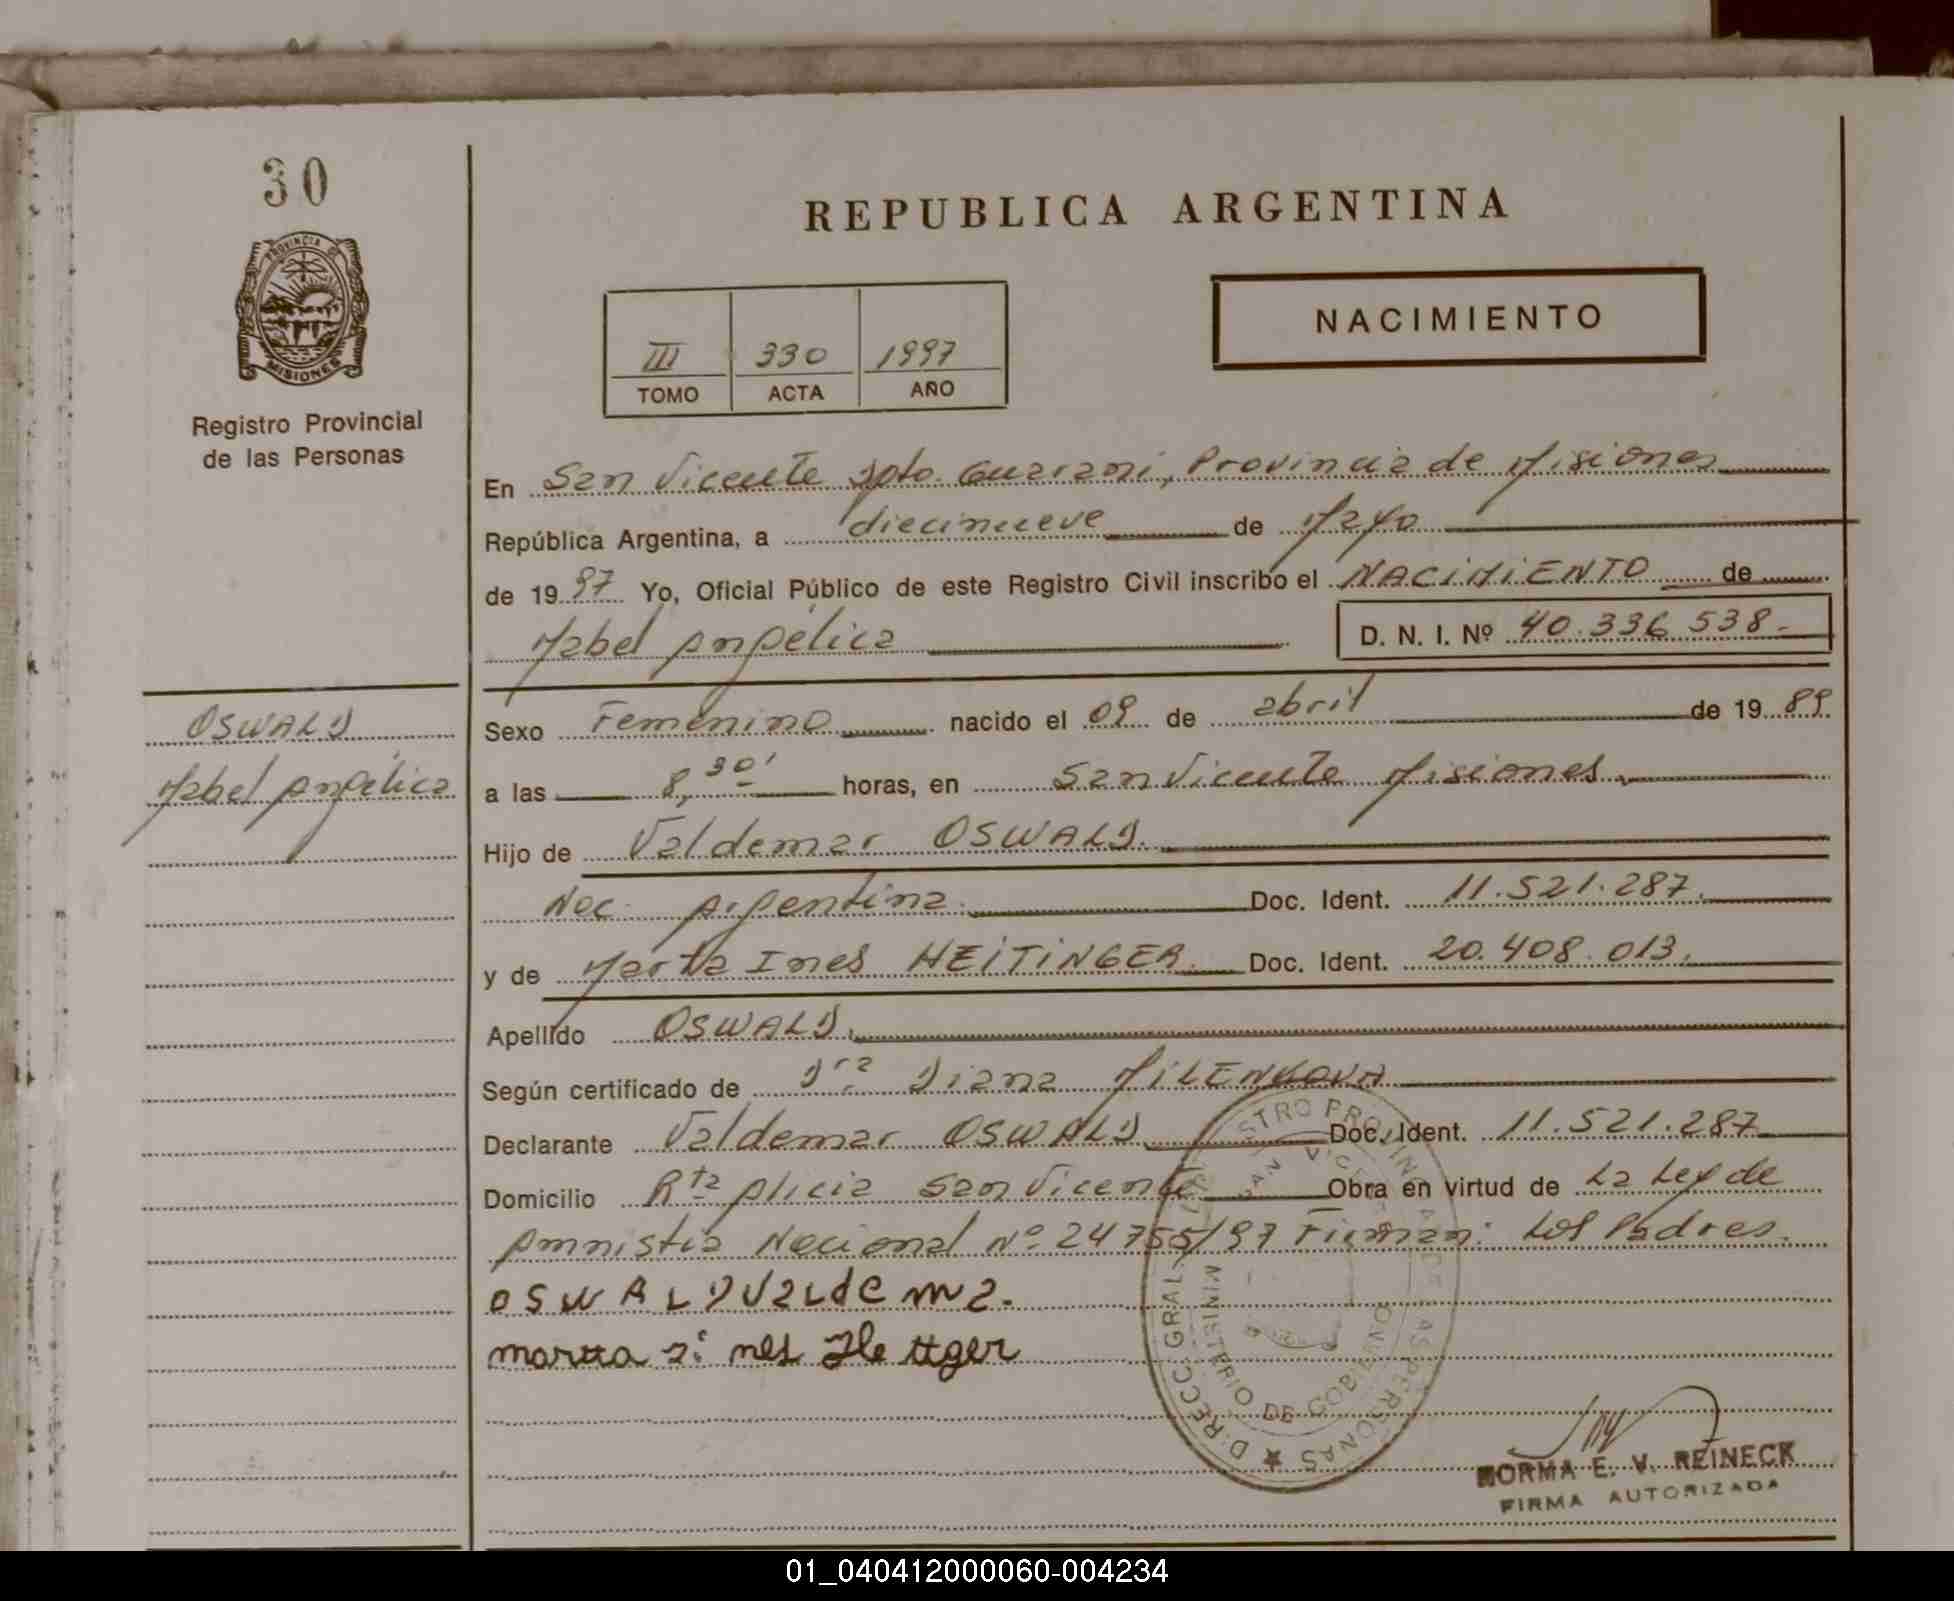 30
PROVINCIA DE
MISIONES
Registro Provincial
de las Personas
REPUBLICA ARGENTINA
NACIMIENTO
III 330 1997
TOMO ACTA AÑO
En San Vicente Dpto. Guarani, Provincia de Misiones
República Argentina, a diecinueve de Mayo
de 1997 Yo, Oficial Público de este Registro Civil inscribo el NACIMIENTO de
Mabel Angélica D. N. I. Nº 40.336.538-
OSWALD
Mabel Angélica
Sexo Femenino nacido el 09 de abril de 1989
a las 8,30' horas, en San Vicente Misiones.
Hijo de Valdemar OSWALD.
Nac. Argentina. Doc. Ident. 11.521.287.
y de Marta Ines HEITINGER. Doc. Ident. 20.408.013.
Apellido OSWALD.
Según certificado de Dra Diana
Declarante Valdemar OSWALD Doc. Ident. 11.521.287
Domicilio Rta Alicia San Vicente Obra en virtud de La Ley de
Amnistia Nacional Nº 24755/97 Firman: Los Padres.
OSWALD VaLdema.
martta i nes
DIRECC. GRAL. REGISTRO PROVINCIAL DE LAS PERSONAS
SAN VICENTE
MINISTERIO DE GOBIERNO
NORMA E. V. REINECK
FIRMA AUTORIZADA
01_040412000060-004234